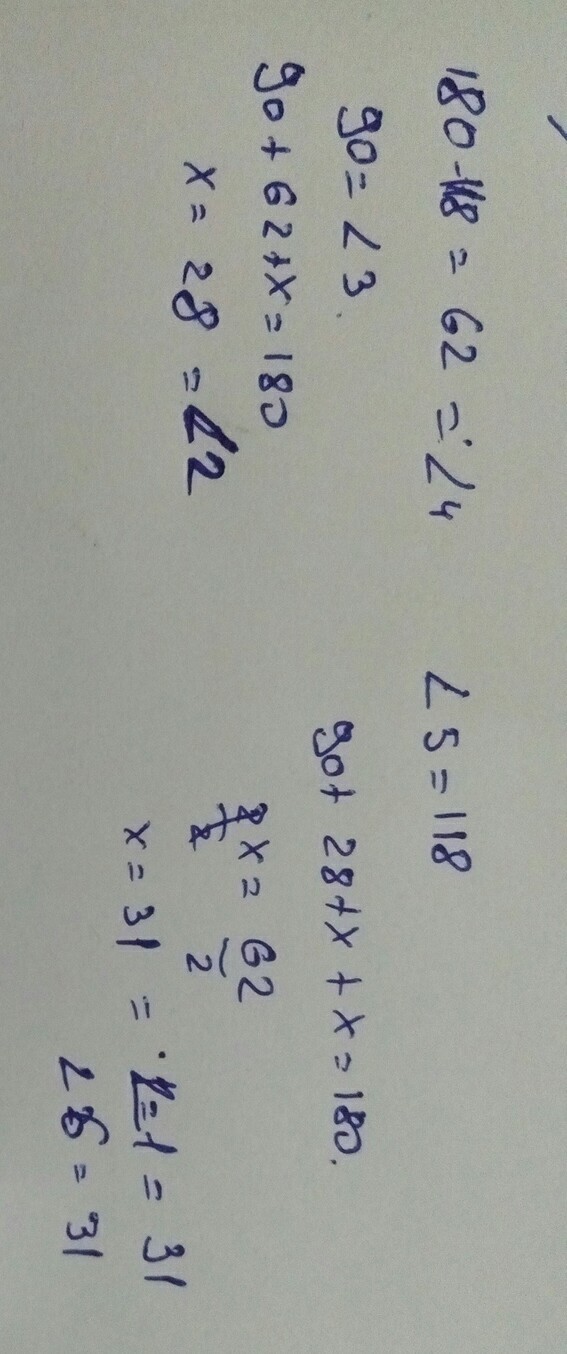 180-118 = 62 = ∠4
90 = ∠3.
90 + 62 + x = 180
x = 28 = ∠2
∠5 = 118
90 + 28 + x + x = 180.
2x = 62
2 2
x = 31 = ∠1 = 31
∠6 = 31